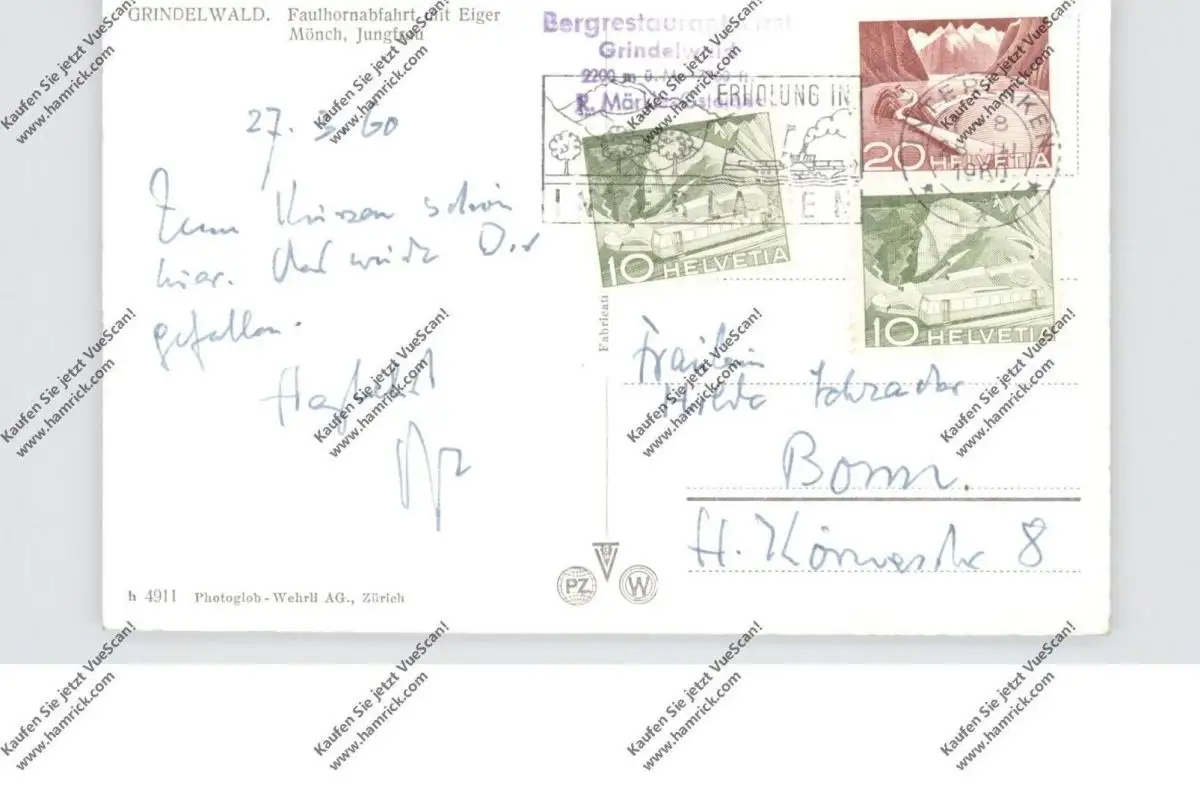 GRINDELWALD. Faulhornabfahrt mit Eiger
Mönch, Jungfrau
Bergrestaurant
Grindelwald
2200 m ü. M.
ERHOLUNG IN
INTERLAKEN
INTERLAKEN
8
1960
20 HELVETIA
10 HELVETIA
10 HELVETIA
27. 3. 60
Zum Küssen schön
hier. Das würde Dir
gefallen.
Fräulein
Hilde Schrader
Bonn.
H. Körnerstr 8
h 4911 Photoglob-Wehrli AG., Zürich
PZ
W
Kaufen Sie jetzt VueScan!
www.hamrick.com
Kaufen Sie jetzt VueScan!
www.hamrick.com
Kaufen Sie jetzt VueScan!
www.hamrick.com
Kaufen Sie jetzt VueScan!
www.hamrick.com
Kaufen Sie jetzt VueScan!
www.hamrick.com
Kaufen Sie jetzt VueScan!
www.hamrick.com
Kaufen Sie jetzt VueScan!
www.hamrick.com
Kaufen Sie jetzt VueScan!
www.hamrick.com
Kaufen Sie jetzt VueScan!
www.hamrick.com
Kaufen Sie jetzt VueScan!
www.hamrick.com
Kaufen Sie jetzt VueScan!
www.hamrick.com
Kaufen Sie jetzt VueScan!
www.hamrick.com